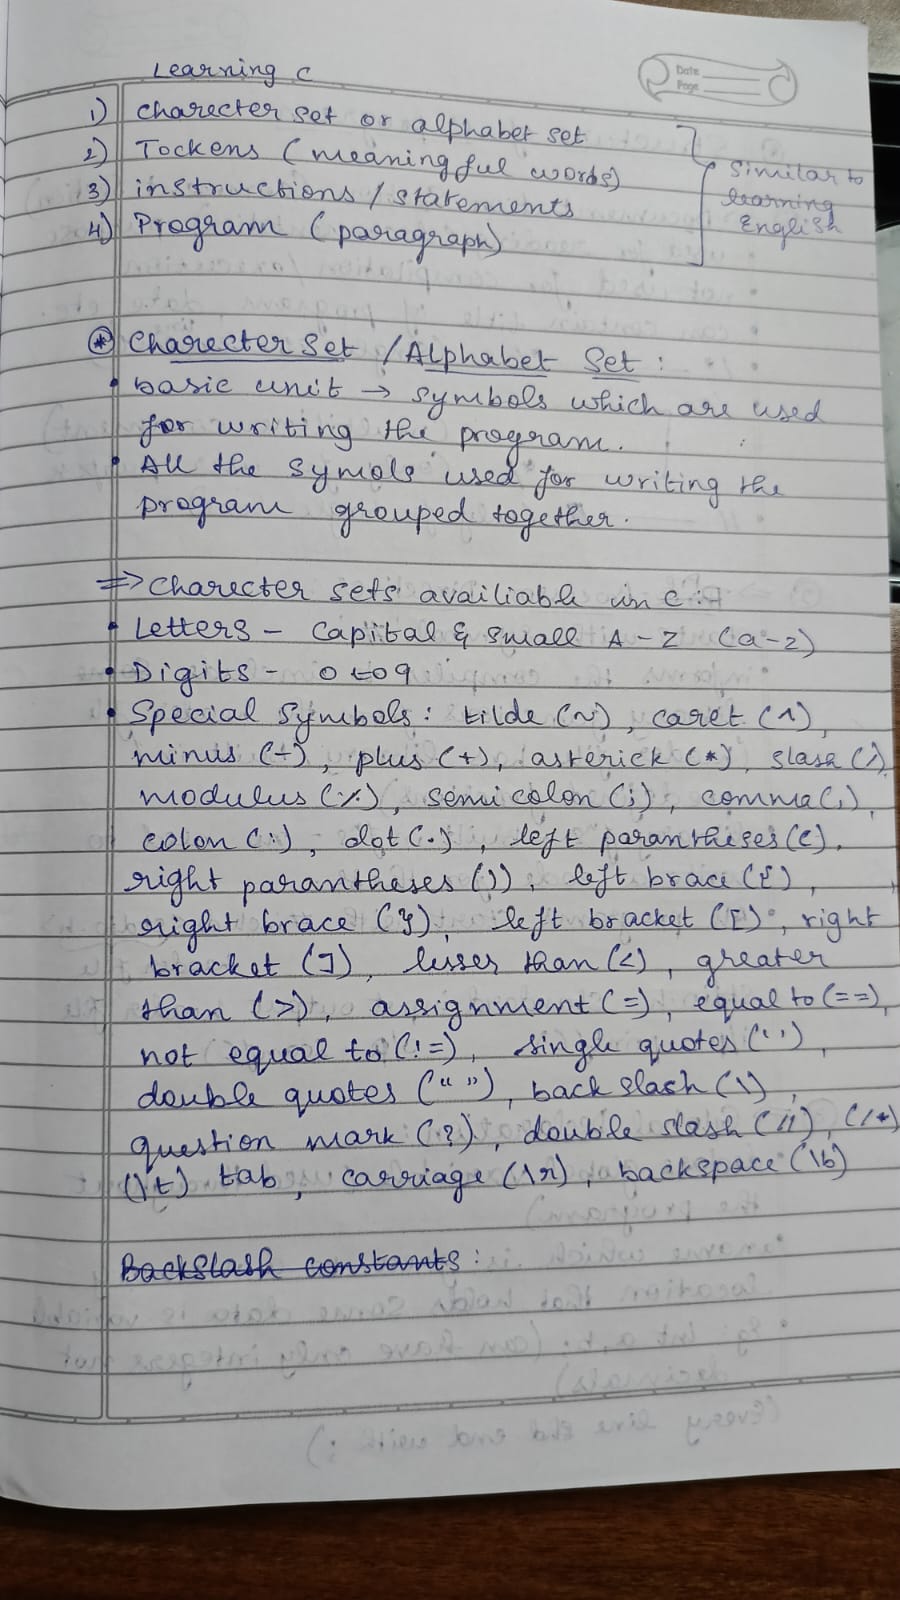 Learning C
Date
Page
1) Charecter set or alphabet set
2) Tockens (meaningful words)
3) instructions / statements
4) Program (paragraph)
Similar to
learning
English
* Charecter Set / Alphabet Set :
• basic unit → symbols which are used
for writing the program.
• All the symols used for writing the
program grouped together.
⇒ Charecter sets availiable in C :-
• Letters - Capital & small A-Z (a-z)
• Digits - 0 to 9
• Special Symbols : tilde (~), caret (^),
minus (-), plus (+), asterick (*), slash (/)
modulus (%), semicolon (;), comma (,),
colon (:), dot (.), left parantheses ((),
right parantheses ()), left brace ({),
right brace (}), left bracket ([), right
bracket (]), lesser than (<), greater
than (>), assignment (=), equal to (==),
not equal to (!=), single quotes (' '),
double quotes (“ ”), back slash (\)
question mark (?), double slash (//), (/*)
(\t) tab, carriage (\r), backspace (\b)
Backslash constants :